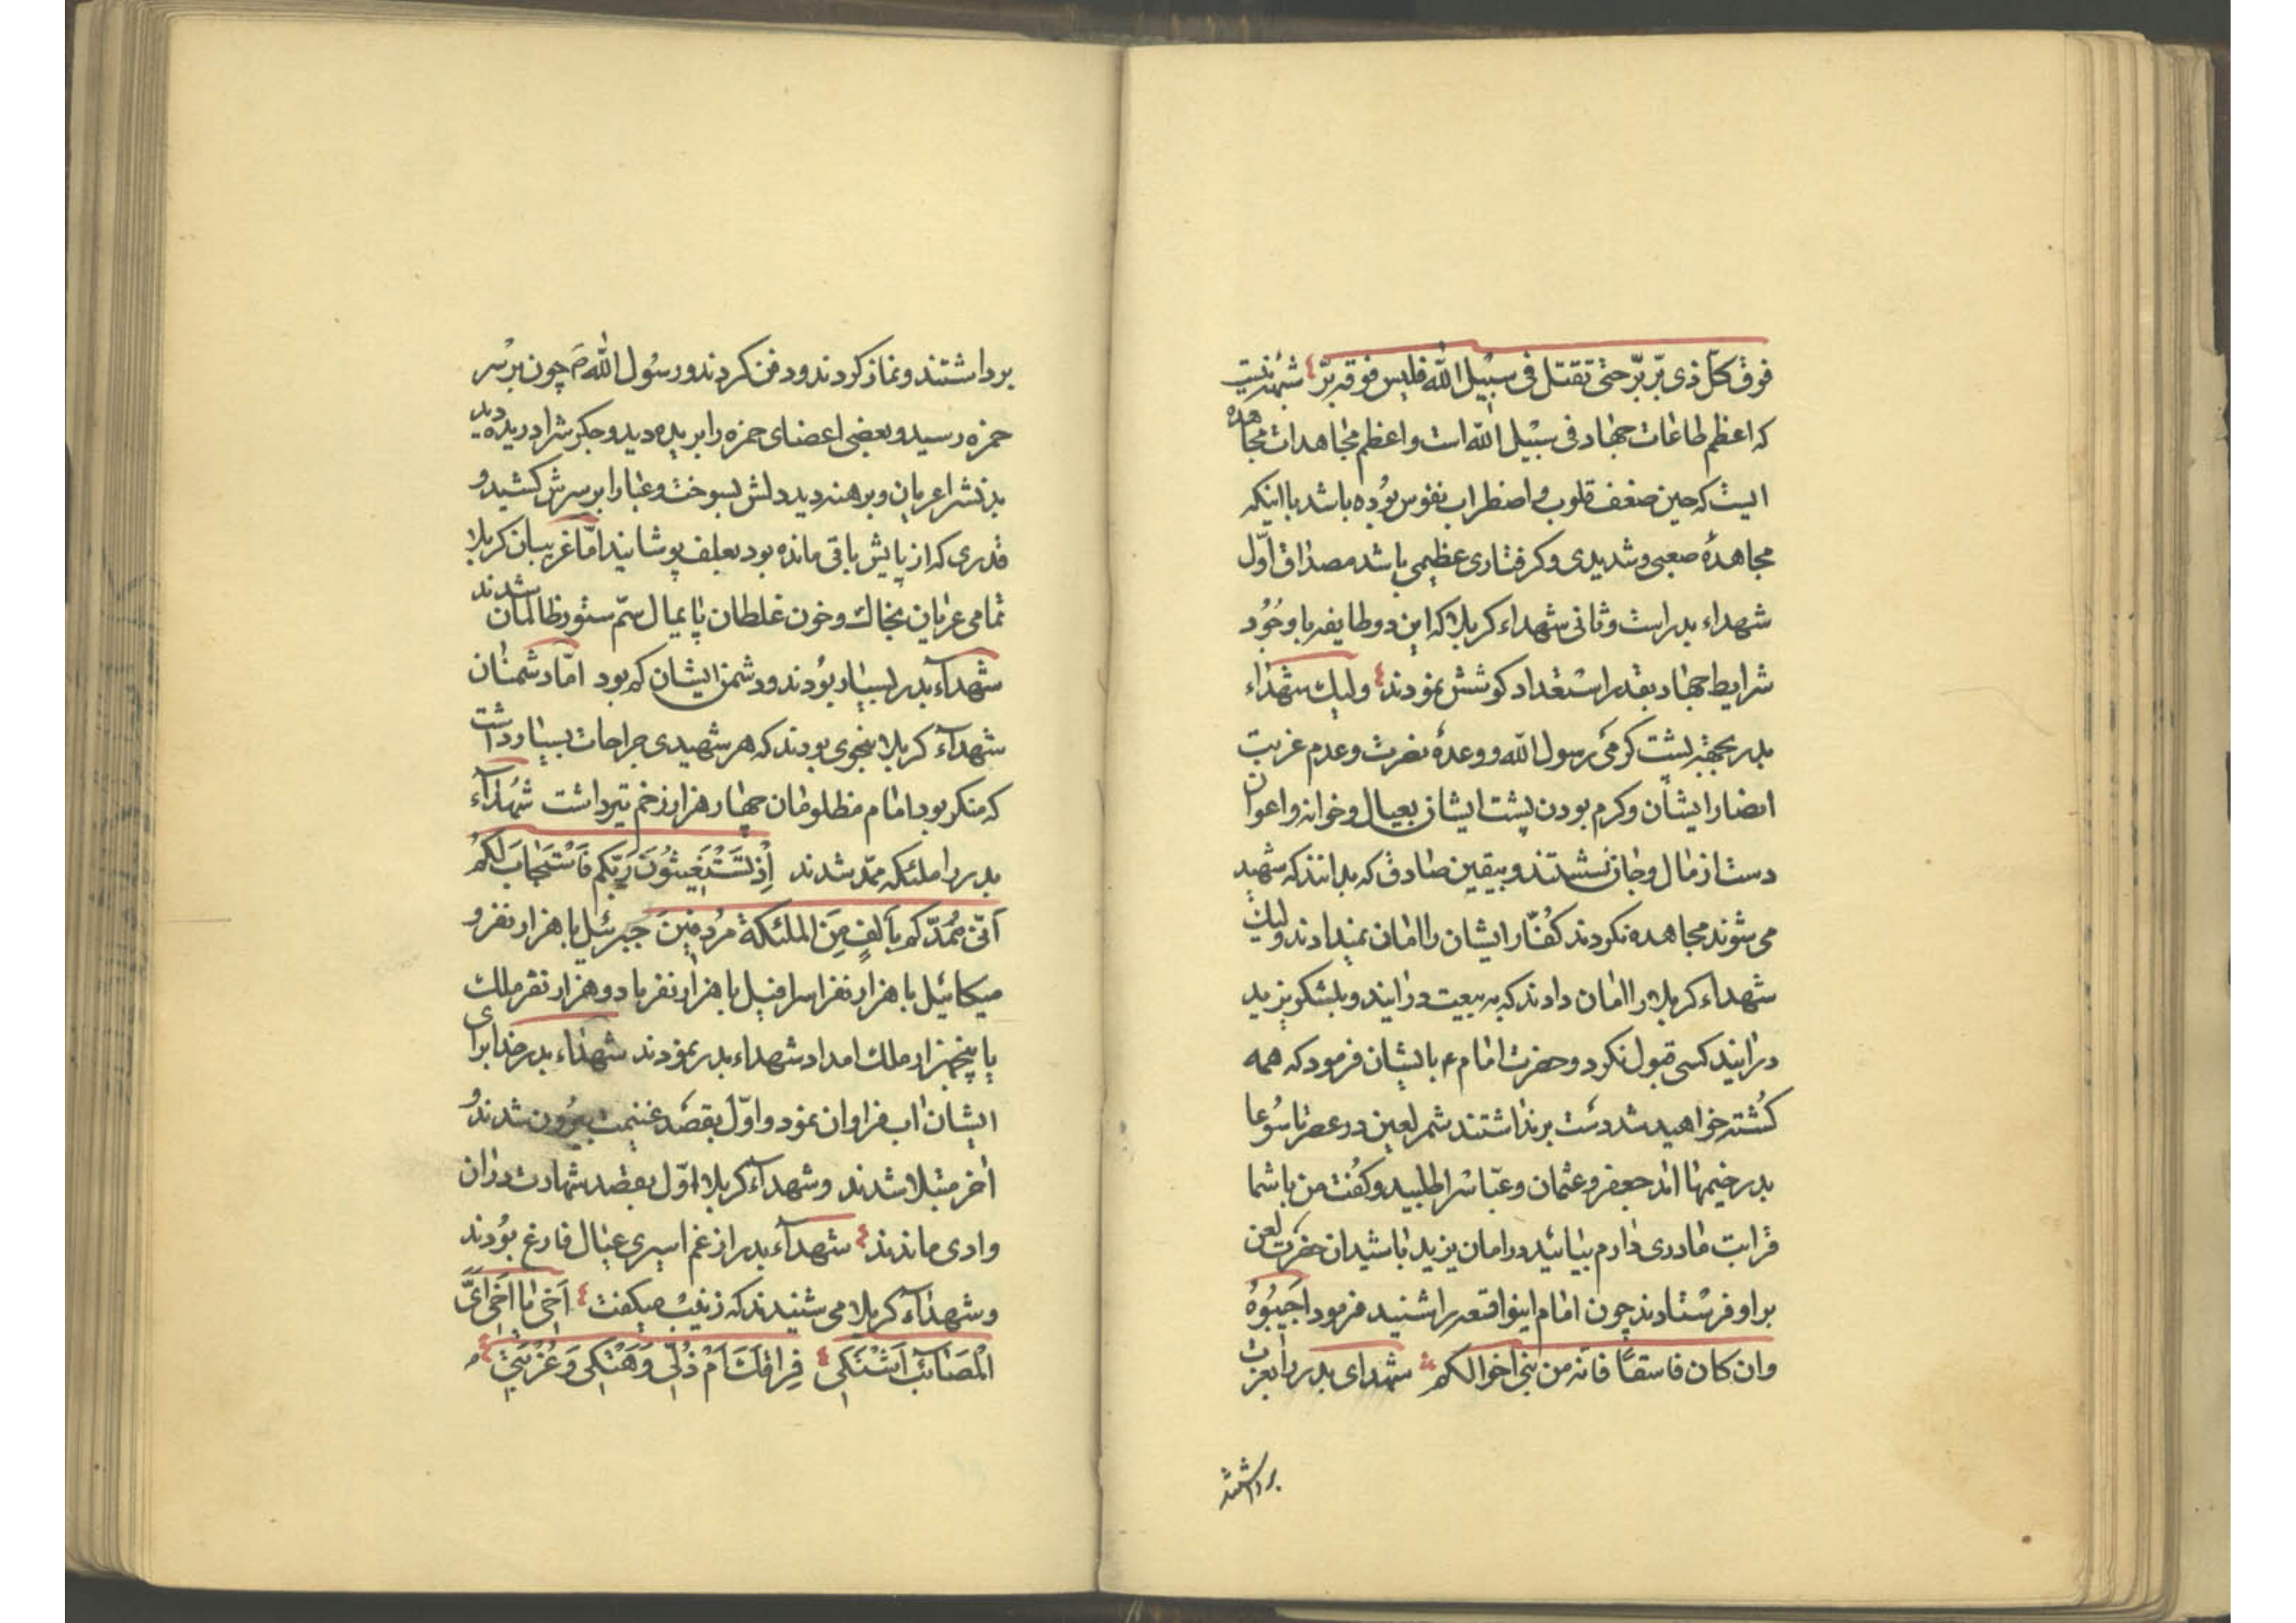 فوق کلّ ذی برّ برّ حتی تقتل فی سبیل الله فلیس فوقه برّ شبهه نیست
که اعظم طاعات جهاد فی سبیل الله است و اعظم مجاهدات مجاهده
ایست که حین ضعف قلوب و اضطراب نفوس بوده باشد با اینکه
مجاهدهٔ صعبی و شدیدی و کرفتاری عظیمی باشد مصداق اوّل
شهداء بدر است و ثانی شهداء کربلا که این دو طایفه با وجُود
شرایط جهاد بقدر استعداد کوشش نمودند ولیک شهداء
بدر بجهة پشت کرمی رسول الله و وعدهٔ نصرت و عدم غربت
انصار ایشان و کرم بودن پشت ایشان بعیال و خوانه و اعوان
دست از مال و جان نشستند و بیقین صادق که بدانند که شهید
می شوند مجاهده نکردند کفّار ایشان را امان نمیدادند ولیک
شهداء کربلا را امان دادند که به بیعت درایند و بلشکر یزید
درایند کسی قبول نکرد و حضرت امام ع بایشان فرمود که همه
کُشته خواهید شد دست برنداشتند شمر لعین در عصر تاسُوعا
بدر خیمها امد جعفر و عثمان و عبّاس را طلبید و کفت من با شما
قرابت مادری دارم بیائید در امان یزید باشید ان حضرت لعن
بر او فرستادند چون امام اینواقعه را شنید فرمود اَجیبُوهُ
وان کان فاسقاً فانّه من بنی اخوالکم شهدای بدر را بعزت
برداشتند
برداشتند و نماز کردند و دفن کردند و رسُول الله ص چون بر سر
حمزه رسید و بعضی اعضای حمزه را بریده دید و جکرش را دریده دید
بدنش را عریان و برهنه دید دلش بسوخت و عبا را بر سرش کشید و
قدری که از پایش باقی مانده بود بعلف پوشانید امّا غریبان کربلا
تمامی عریان بخاک و خون غلطان پایمال سمّ ستور ظالمان شدند
شهدآء بدر بسیار بُودند و دشمن ایشان کم بود امّا دشمنان
شهدآء کربلا بنحوی بودند که هر شهیدی جراحات بسیار داشت
که منکر بود امام مظلومان چهار هزار زخم تیر داشت شهدآء
بدر را ملئکه ممدّ شدند اِذْ تَسْتَغیثُونَ رَبّکم فَاسْتَجابَ لَکُم
اَنّی مُمدّکم بِاَلفٍ مِنَ الملئکة مُردِفینَ جبرئیل با هزار نفر و
میکائیل با هزار نفر اسرافیل با هزار نفر با دو هزار نفر ملک
با پنجهزار ملک امداد شهداء بدر نمودند شهداء بدر خدا برای
ایشان اب فراوان نمود و اوّل بقصد غنیمت بیرُون شدند و
اخر مبتلا شدند و شهدآء کربلا اوّل بقصد شهادت دران
وادی ماندند شهدآء بدر از غم اسیری عیال فارغ بُودند
و شهدآء کربلا می شنیدند که زینب میکفت اَخی یا اَخی اَیَّ
الْمَصَائب اَشْتَکی فِراقکَ اَمْ ذُلّی وَهَتْکی وَغُرْبَتی